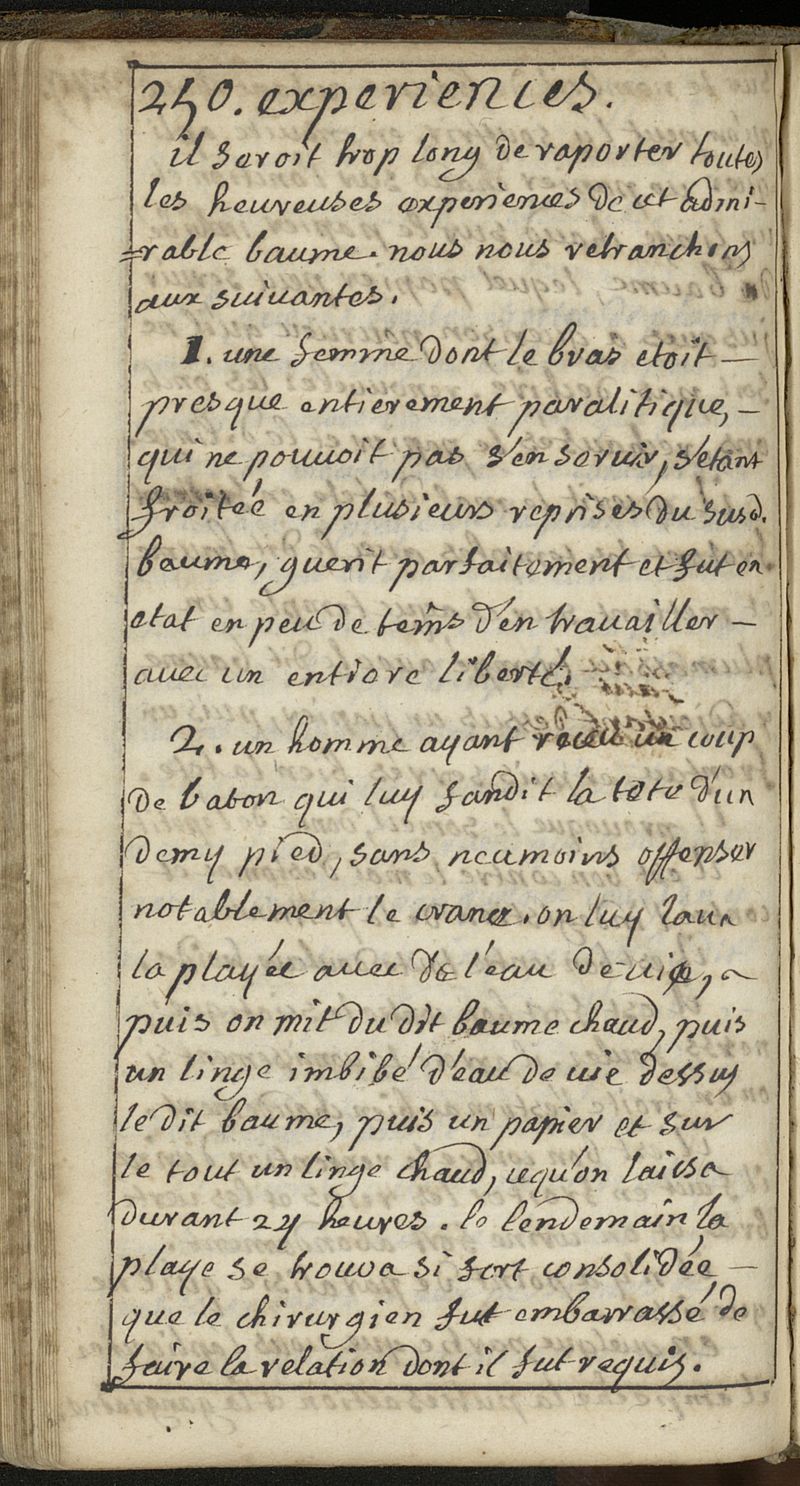 250. experiences.
il seroit trop long de raporter toutes
les heureuses experiences de cet admi-
=rable baume. nous nous retranchons
aux suivantes.
1. une femme dont le bras etoit —
presque entierement paralitique, —
qui ne pouvoit pas s'en servir, s'etant
froitée en plusieurs reprises du susd.
baume, guerit parfaitement et fut en
etat en peu de tems d'en travailler —
avec un entiere liberté.
2. un homme ayant receu un coup
de baton qui luy fandit la tete d'un
demy pied, sans neamoins offenser
notablement le crane. on luy lava
la playée avec de l'eau de vie, ~
puis on mit du dit baume chaud, puis
un linge imbibé d'eau de vie dessus
le dit baume, puis un papier et sur
le tout un linge chaud, cequ'on laissa
durant 24 heures. le lendemain la
playe se trouva si fort consolidée —
que le chirurgien fut embarrassé de
faire la relation dont il fut requis.